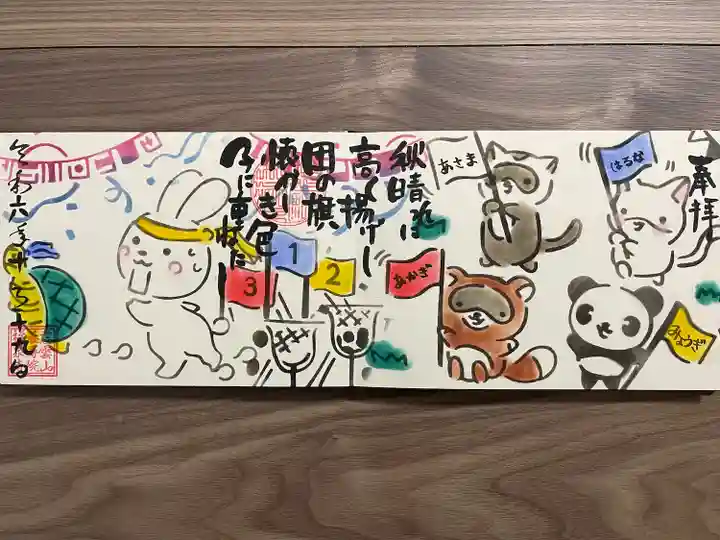 奉拝
はるな
あさま
みょうぎ
あかぎ
秋晴れに
高く揚げし
団の旗
懐かしき色
乃に重ねた
1
2
3
令和六年十月十九日